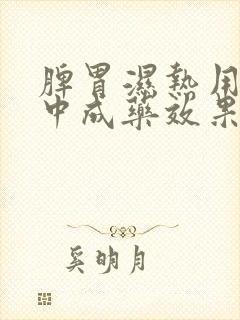 脾胃濕熱用
中成藥效果
奚明月